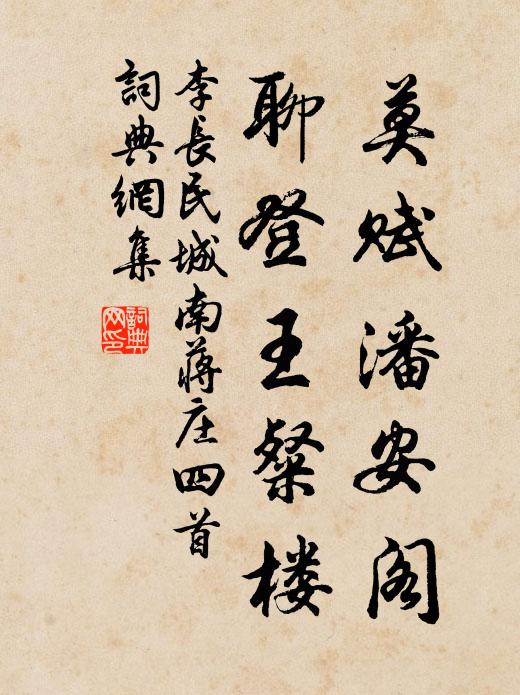 莫赋潘安阁
聊登王粲楼
李長民城南蔣庄四首
詞典網集
詞典网印